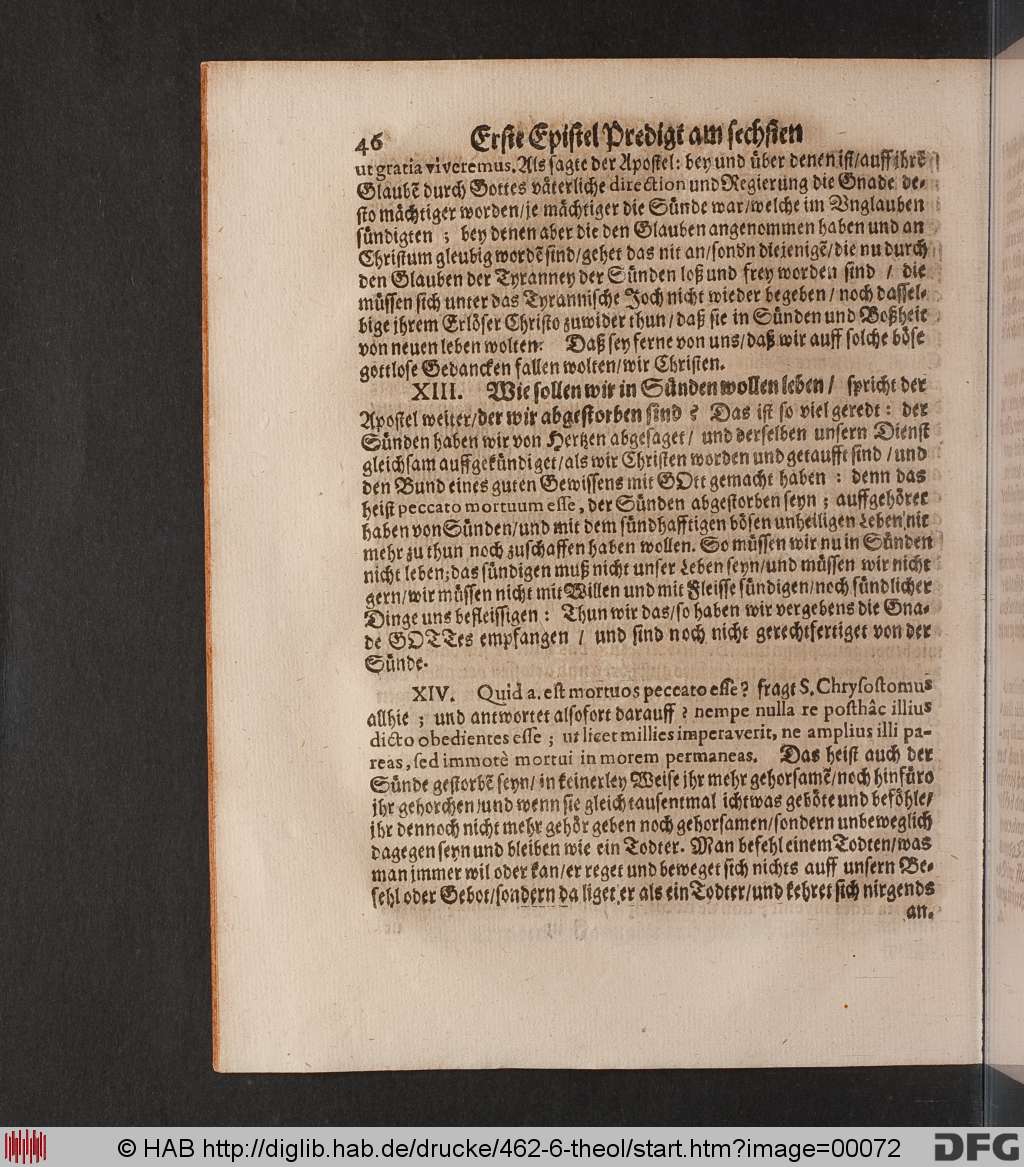 46 Erste Epistel Predigt am sechsten
ut gratia viveremus. Als sagte der Apostel: bey und über denen ist/auff ihrẽ
Glaubẽ durch Gottes väterliche direction und Regierung die Gnade de-
sto mächtiger worden/je mächtiger die Sünde war/welche im Unglauben
sündigten ; bey denen aber die den Glauben angenommen haben und an
Christum gleubig wordẽ sind/gehet das nit an/sondn diejenigẽ/die nu durch
den Glauben der Tyranney der Sünden loß und frey worden sind / die
müssen sich unter das Tyrannische Joch nicht wieder begeben / noch dassel-
bige jhrem Erlöser Christo zuwider thun/daß sie in Sünden und Boßheit
von neuen leben wolten. Daß sey ferne von uns/daß wir auff solche böse
gottlose Gedancken fallen wolten/wir Christen.
XIII. Wie sollen wir in Sünden wollen leben / spricht der
Apostel weiter/der wir abgestorben sind ? Das ist so viel geredt : der
Sünden haben wir von Hertzen abgesaget / und derselben unsern Dienst
gleichsam auffgekündiget/als wir Christen worden und getaufft sind /und
den Bund eines guten Gewissens mit GOtt gemacht haben : denn das
heist peccato mortuum esse, der Sünden abgestorben seyn ; auffgehöret
haben von Sünden/und mit dem sündhafftigen bösen unheiligen Leben nit
mehr zu thun noch zuschaffen haben wollen. So müssen wir nu in Sünden
nicht leben;das sündigen muß nicht unser Leben seyn/und müssen wir nicht
gern/wir müssen nicht mit Willen und mit Fleisse sündigen/noch sündlicher
Dinge uns befleissigen : Thun wir das/so haben wir vergebens die Gna-
de GOTTes empfangen / und sind noch nicht gerechtfertiget von der
Sünde.
XIV. Quid a. est mortuos peccato esse? fragt S. Chrysostomus
allhie ; und antwortet alsofort darauff ? nempe nulla re posthâc illius
dicto obedientes esse ; ut licet millies imperaverit, ne amplius illi pa-
reas, sed immotè mortui in morem permaneas. Das heist auch der
Sünde gestorbẽ seyn/ in keinerley Weise jhr mehr gehorsamẽ/noch hinfüro
jhr gehorchen/und wenn sie gleich tausentmal ichtwas geböte und befőhle/
jhr dennoch nicht mehr gehör geben noch gehorsamen/sondern unbeweglich
dagegen seyn und bleiben wie ein Todter. Man befehl einem Todten/was
man jmmer wil oder kan/er reget und beweget sich nichts auff unsern Be-
fehl oder Gebot/sondern da liget er als ein Todter/und kehret sich nirgends
an.
© HAB http://diglib.hab.de/drucke/462-6-theol/start.htm?image=00072
DFG